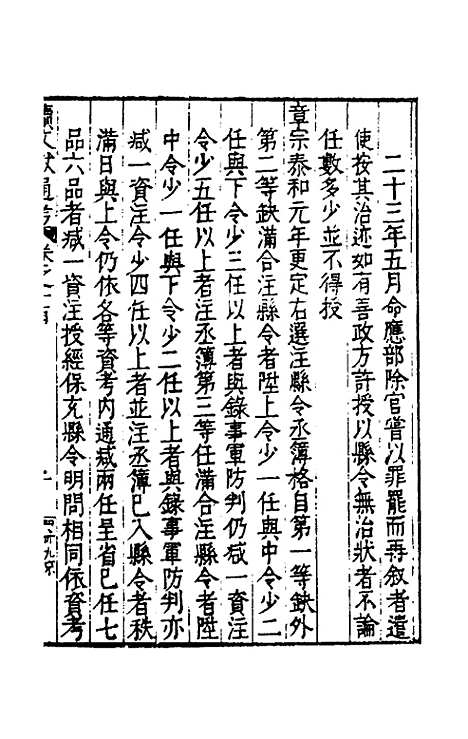 二十三年五月命應部除官嘗以罪罷而再叙者遣
使按其治迹如有善政方許授以縣令無治狀者不論
任數多少並不得授
章宗泰和元年更定右選注縣令丞簿格自第一等缺外
第二等缺滿合注縣令者陞上令少一任與中令少二
任與下令少三任以上者與錄事軍防判仍减一資注
令少五任以上者注丞簿第三等任滿合注縣令者陞
中令少一任與下令少二任以上者與錄事軍防判亦
减一資注令少四任以上者並注丞簿已入縣令者秩
滿日與上令仍依各等資考内通减兩任呈省已任七
品六品者减一資注授經保充縣令明問相同依資考
續文獻通考